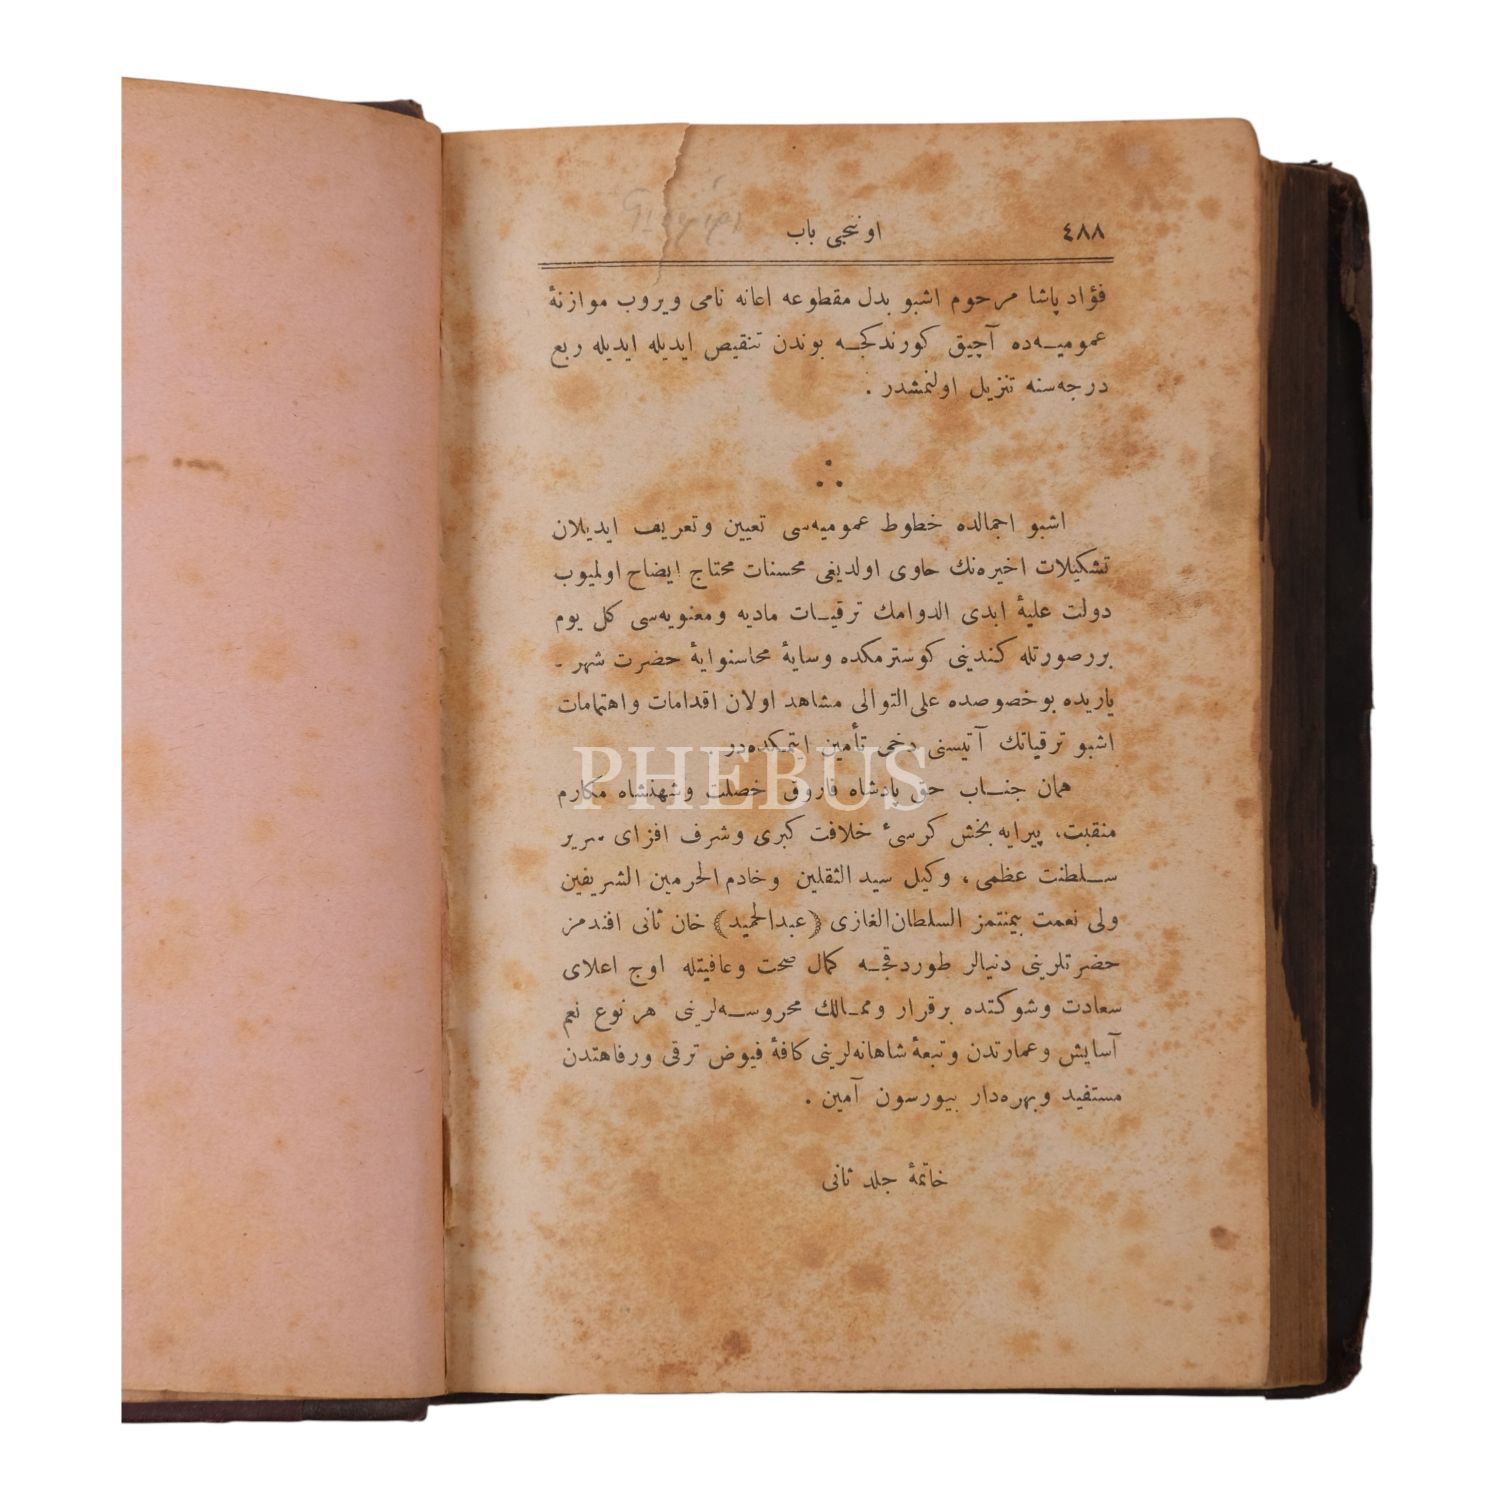 ٤٨٨
اوننجی باب
فؤاد پاشا مرحوم اشبو بدل مقطوعه اعانه نامی ویروب موازنهٔ
عمومیـه‌ده آچیق کورندکجـه بوندن تنقیص ایدیله ایدیله ربع
درجه‌سنه تنزیل اولنمشدر .
اشبو اجمالده خطوط عمومیه‌سی تعیین وتعریف ایدیلان
تشکیلات اخیره‌نك حاوی اولدیغی محسنات محتاج ایضاح اولمیوب
دولت علیهٔ ابدی الدوامك ترقیـات مادیه ومعنویه‌سی کل یوم
بررصورتله کندینی کوسترمکده وسایهٔ محاسنوایهٔ حضرت شهر -
یاریده بوخصوصده علی‌التوالی مشاهد اولان اقدامات واهتمامات
اشبو ترقیاتك آتیسنی دخی تأمین ایتمکده‌در .
همان جنـاب حق پادشاه فاروق خصلت وشهنشاه مکارم
منقبت، پیرایه بخش کرسیٔ خلافت کبری وشرف افزای سریر
سـلطنت عظمی، وکیل سید الثقلین وخادم الحرمین الشریفین
ولی نعمت بیمنتمز السلطان‌الغازی (عبدالحمید) خان ثانی افندمز
حضرتلرینی دنیالر طوردقجـه کمال صحت وعافیتله اوج اعلای
سعادت وشوکتده برقرار وممـالك محروسـه‌لرینی هرنوع نعم
آسایش وعمارتدن وتبعهٔ شاهانه‌لرینی کافهٔ فیوض ترقی ورفاهتدن
مستفید وبهره‌دار بیورسون آمین .
خاتمهٔ جلد ثانی
PHEBUS